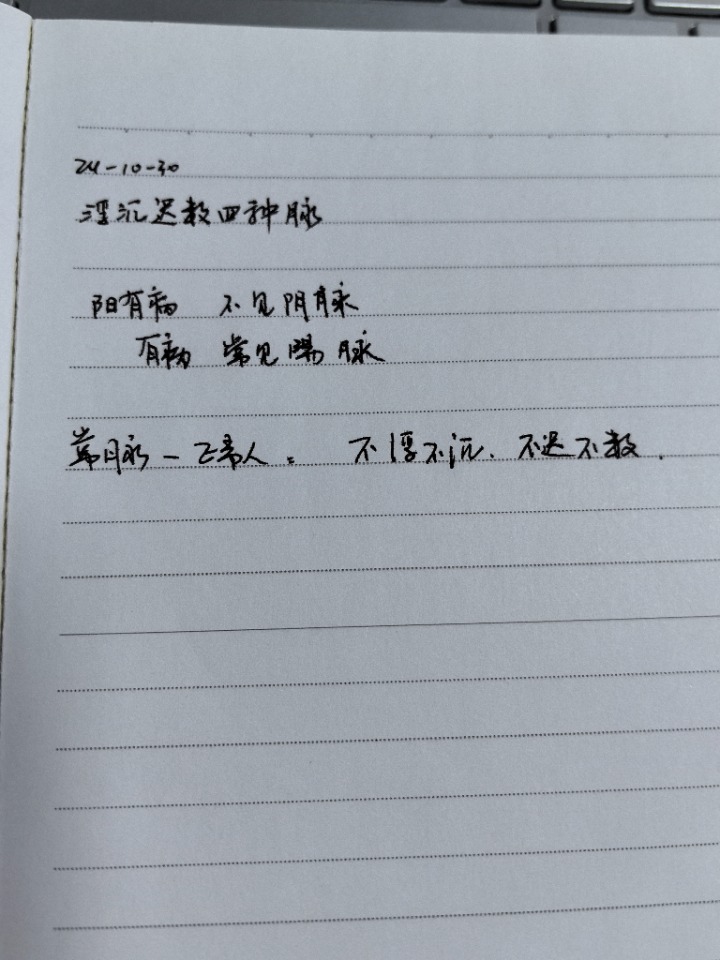 24-10-30
浮沉迟数四种脉
阳有病 不见阴脉
有病 常见陽脉
常脉一正常人: 不浮不沉、不迟不数.